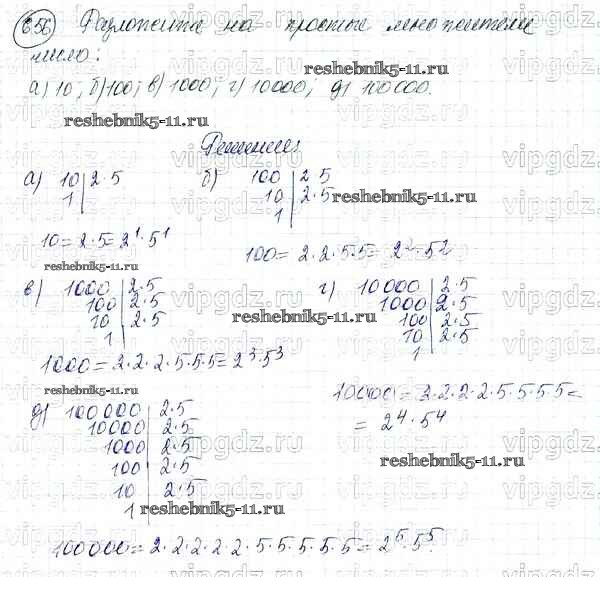 656 Разложите на простые множители
число:
а) 10; б) 100; в) 1000; г) 10000; д) 100000.
reshebnik5-11.ru
reshebnik5-11.ru
Решение:
а) 10 | 2·5
1 |
б) 100 | 2·5
10 | 2·5
1 |
reshebnik5-11.ru
10 = 2·5 = 2¹·5¹
100 = 2·2·5·5 = 2²·5²
reshebnik5-11.ru
в) 1000 | 2·5
100 | 2·5
10 | 2·5
1 |
г) 10000 | 2·5
1000 | 2·5
100 | 2·5
10 | 2·5
1 |
reshebnik5-11.ru
1000 = 2·2·2·5·5·5 = 2³·5³
reshebnik5-11.ru
10000 = 2·2·2·2·5·5·5·5 =
= 2⁴·5⁴
д) 100000 | 2·5
10000 | 2·5
1000 | 2·5
100 | 2·5
10 | 2·5
1 |
reshebnik5-11.ru
reshebnik5-11.ru
100000 = 2·2·2·2·2·5·5·5·5·5 = 2⁵·5⁵.
vipgdz.ru